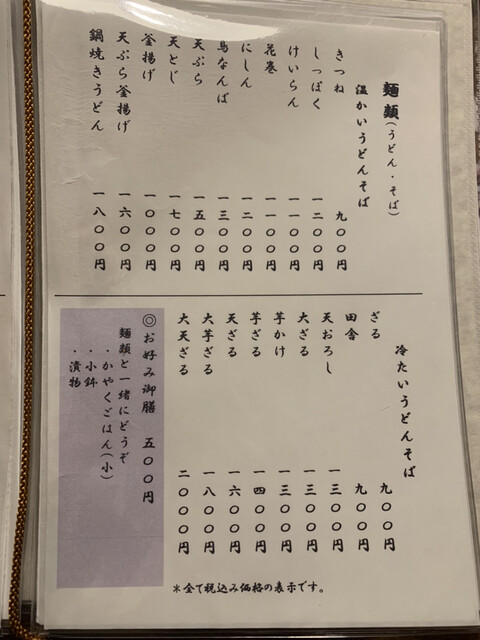 麺類(うどん・そば)
温かいうどんそば
きつね 九〇〇円
しっぽく 一二〇〇円
けいらん 一一〇〇円
花巻 一一〇〇円
にしん 一二〇〇円
鳥なんば 一三〇〇円
天ぷら 一五〇〇円
天とじ 一七〇〇円
釜揚げ 一〇〇〇円
天ぷら釜揚げ 一六〇〇円
鍋焼きうどん 一八〇〇円
冷たいうどんそば
ざる 九〇〇円
田舎 九〇〇円
天おろし 一三〇〇円
大ざる 一三〇〇円
芋かけ 一三〇〇円
芋ざる 一四〇〇円
天ざる 一六〇〇円
大芋ざる 一八〇〇円
大天ざる 二〇〇〇円
◎お好み御膳 五〇〇円
麺類と一緒にどうぞ
・かやくごはん(小)
・小鉢
・漬物
＊全て税込み価格の表示です。